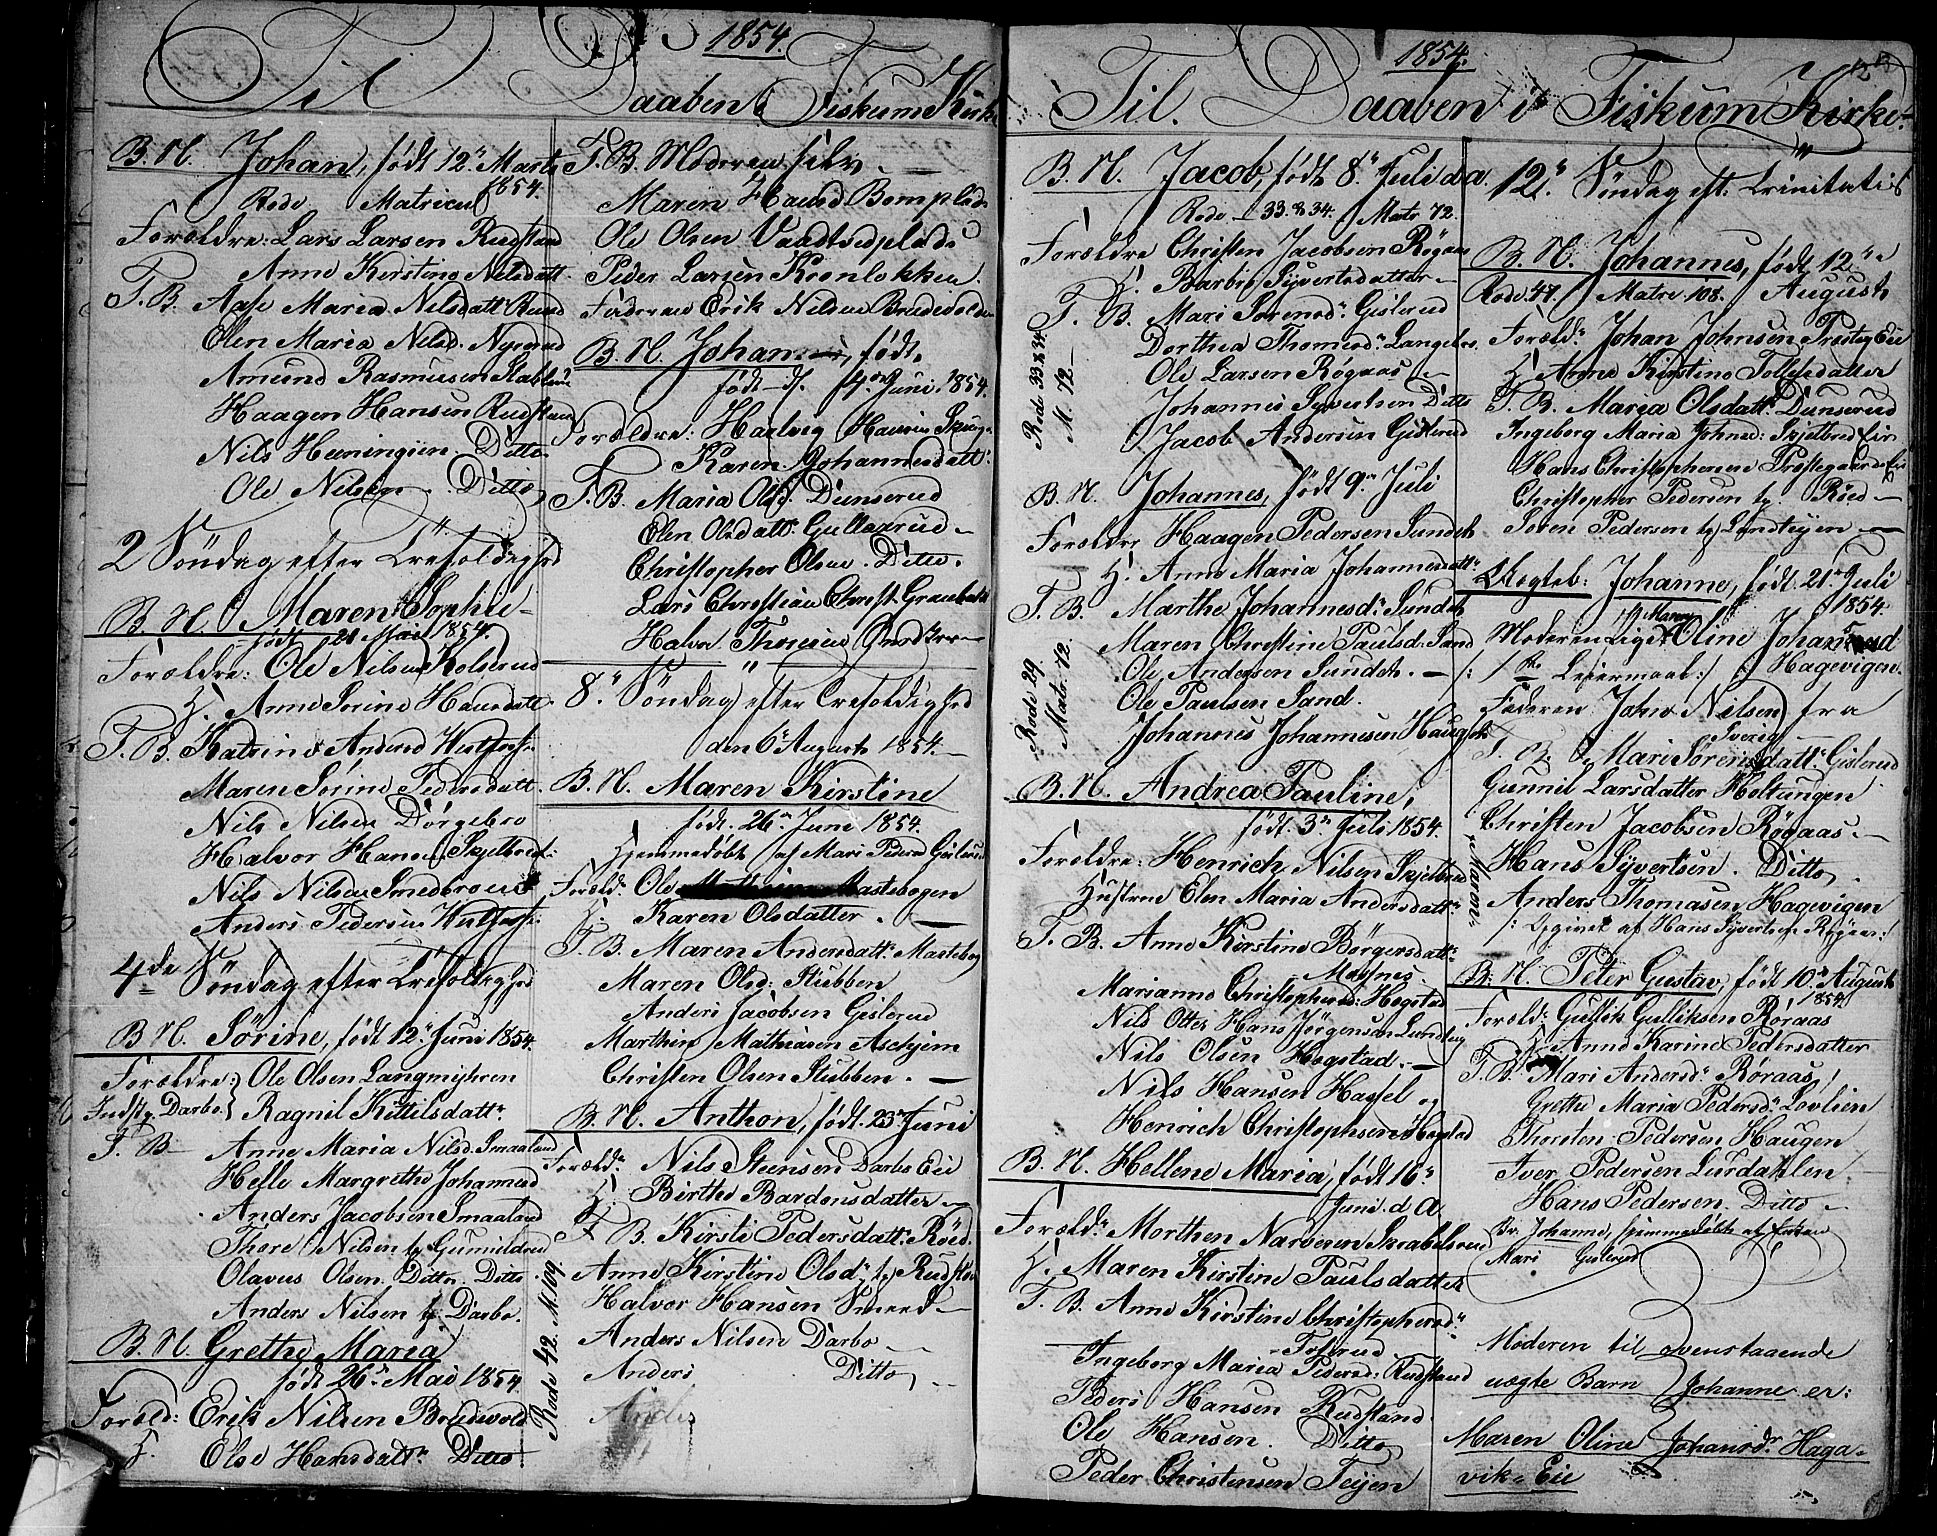 1854.
Til Daaben i Fiskum Kirke
B. N. Johan, født 12te Marts
1854.
Rode Matricul
Forældre: Lars Larsen Rudstand
Anne Kirstine Nelsdatt
F. B. Aase Maria Nilsdatt
Elen Maria Nilsd.
Amund Rasmusen
Haagen Hansen Rudstand
Nils Henningsen. Ditto
Ole Nilsen. Ditto
2 Søndag efter Trefoldighed
B. N. Maren Sophie
født 21 Mai 1854.
Forældre: Ole Nilsen Kolserud
H. Anne Sorine Hansdatt
F. B. Katrine Andersd
Maren Sørine Pedersdatt.
Nils Nilsen Dørgebro
Halvor Hansen Skjelbred
Nils Nilsen Smedbronen
Anders Pedersen
4de Søndag efter Trefoldighed
B. N. Sörine, født 12te Juni 1854.
Forældre: Ole Olsen Langmyhren
Indst. Darbo Ragnil Kittilsdattr
F. B. Anne Maria Nilsd. Smaaland
Helle Margrethe Johannesd
Anders Jacobsen Smaaland
Thore Nilsen
Olavus Olsen. Ditto. Ditto
Anders Nilsen Darbo.
B. N. Grethe Maria
født 26te Mai 1854
Foræld: Erik Nilsen Bredevold
H. Else Hansdattr Ditto
F. B. Moderen selv
Maren Hansd
Ole Olsen
Peder Larsen Kronlokken
Faderen Erik Nilsen Bredevolden
B. N. Johan, født
født d. 4de Juni 1854.
Forældre: Hartvig Hansen
Karen Johannesdatt
F. B. Maria Olsd. Dunserud
Elen Olsdatt. Gullaarud
Christopher Olsen. Ditto.
Lars Christian Christ.
Halvor Thoresen
8de Søndag efter Trefoldighed
den 6te August 1854.
B. N. Maren Kirstine
født 26te Juni 1854.
Hjemmedøbt af Mari Pedersd Gislerud
Foræld. Ole Mastebogen
H. Karen Olsdatter.
F. B. Maren Andersdatt. Mastebog
Maren Olsd. Stubben
Anders Jacobsen Gislerud
Marthin Mathiasen Aschjem
Christen Olsen Stubben.
B. N. Anthon, født 23de Juni
Foræld. Nils Steensen Darbo Eie
H. Birthe Bardonsdatter
F. B. Kirsti Pedersdatt. Röed
Anne Kirstine Olsd.
Halvor Hansen Smed
Anders Nilsen Darbo
Anders Ditto
Rode 42. M. 109.
1854.
Til Daaben i Fiskum Kirke.
B. N. Jacob, født 8de Juli d. a.
Rode 33 & 34. Matr 72.
Forældre Christen Jacobsen Røgaas
H. Barbro Syvertsdatter
F. B. Mari Sorensd. Gislerud
Dorthea Thomesd. Langebro
Ole Larsen Røgaas
Johannes Syvertsen Ditto
Jacob Andersen Gislerud
Rode 33 & 34.
M. 72.
B. N. Johannes, født 9de Juli
Forældre Haagen Pedersen Sundet
H. Anne Maria Johannesdatt
F. B. Marthe Johannesd. Sundet
Maren Christine Paulsd. Sand
Ole Andersen Sundet.
Ole Paulsen Sand.
Johannes Johannesen Haugen
Rode 29
Matr. 72.
B. N. Andrea Pauline,
født 3de Juli 1854.
Forældre: Henrich Nilsen Skjelbred
Hustrue Elen Maria Andersdatt.
F. B. Anne Kirstine Børgersdatt.
Moşnes
Marianne Christophersd. Hogstad
Nils Otter Hans Jørgensen
Nils Olsen Hogstad.
Nils Hansen Hassel og
Henrich Christophsen Hogstad
B. N. Hellene Maria, født 16de
Juni d. A.
Foræld. Morthen Narvesen Skrabelsrud
H. Maren Kirstine Paulsdatter
F. B. Anne Kirstine Christophersd.
Ingeborg Maria Pedersd. Rudstand
Peder Hansen Rudstand.
Ole Hansen. Ditto
Peder Christensen Teijen
12te Søndag eft. Trinitatis
B. N. Johannes, født 12te
Rode. 47. Matr. 108. August
Foræld. Johan Johnsen Præsteg Eie
H. Anne Kirstine Tollefsdatter
F. B. Maria Olsdatt. Dunserud
Ingeborg Maria Johnsd. Skjelbred Eie
Hans Christophersen Præstegaards Eie
Christopher Pedersen Röed
Søren Pedersen
Uægteb: Johanne, født 21de Juli
1854.
Maren
Moderen Pige Oline Johansd
Hagevigen.
/: 1ste Leiermaal :/
Faderen John Nilsen fra
Sverig
F. B. Mari Sörensdatt. Gislerud
Gunnil Larsdatter Holtungen
Christen Jacobsen Røgaas
Hans Syvertsen. Ditto
Anders Thomasen Hagevigen
/: Opgivet af Hans Syvertsen Røgaas :/
Maren
B. N. Peter Gustav, født 10de August
1854
Foræld. Gullik Gulliksen Røraas
H. Anne Karine Pedersdatter
F. B. Mari Andersd. Røraas
Grethe Maria Pedersd. Lovlien
Thorsten Pedersen Haugen
Iver Pedersen Lurdahlen
Hans Pedersen. Ditto
Br. Johanne, hjemmedøbt af Enken
Mari Gislerud
Moderen til ovenstaaende
uægte Barn Johanne er:
Maren Olina Johansdr Haga-
vik- Eie